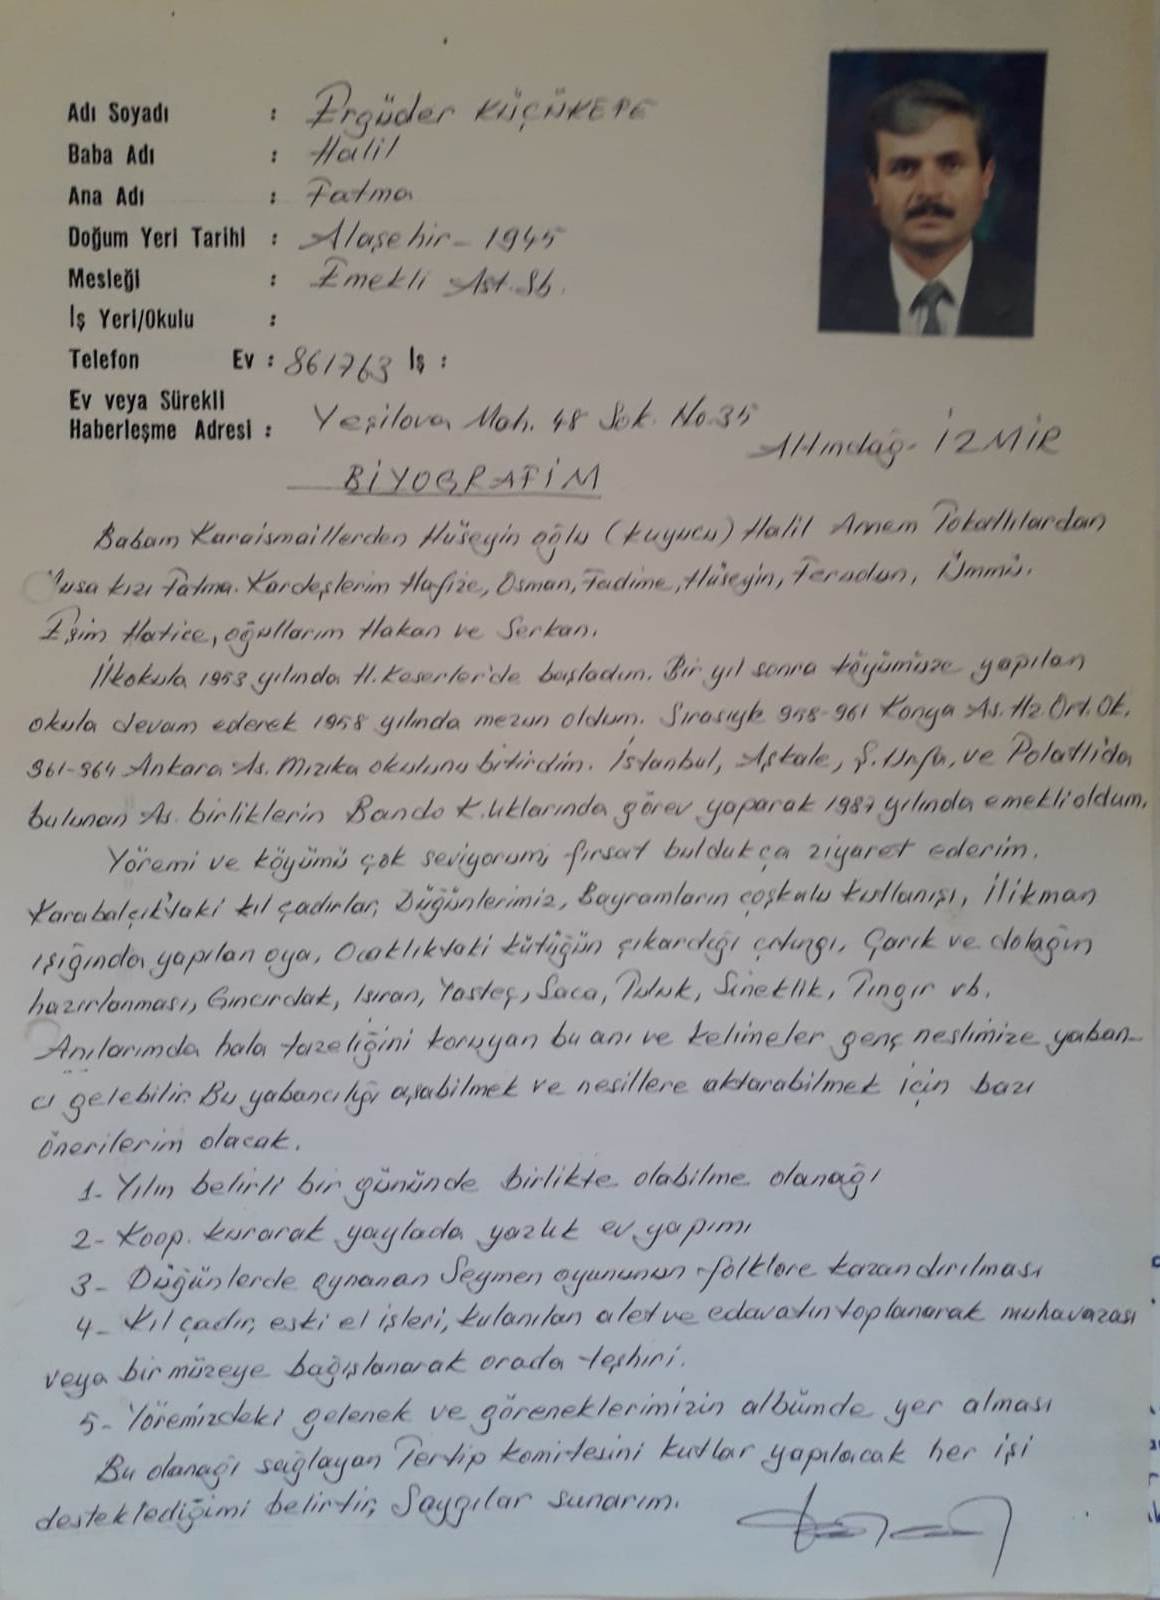 Adı Soyadı : Ergüder KÜÇÜKEPE
Baba Adı : Halil
Ana Adı : Fatma
Doğum Yeri Tarihi : Alaşehir - 1945
Mesleği : Emekli Ast. Sb.
İş Yeri/Okulu :
Telefon Ev : 861763 İş :
Ev veya Sürekli
Haberleşme Adresi : Yeşilova Mah. 48 Sok. No.35
Altındağ - İZMİR
BİYOGRAFİM
Babam Karaismaillerden Hüseyin oğlu (kuyucu) Halil Annem Tokatlılardan
Musa kızı Fatma. Kardeşlerim Hafize, Osman, Fadime, Hüseyin, Feradun, Ümmü.
Eşim Hatice, oğullarım Hakan ve Serkan.
İlkokula 1953 yılında H. Keserler'de başladım. Bir yıl sonra köyümüze yapılan
okula devam ederek 1958 yılında mezun oldum. Sırasıyle 958-961 Konya As. Hz. Ort. Ok.
961-964 Ankara As. Mızıka okulunu bitirdim. İstanbul, Aşkale, Ş. Urfa, ve Polatlıda
bulunan As. birliklerin Bando K.lıklarında görev yaparak 1987 yılında emekli oldum.
Yöremi ve köyümü çok seviyorum, fırsat buldukça ziyaret ederim.
Karabalçık'taki kıl çadırlar, Düğünlerimiz, Bayramların coşkulu kutlanışı, İlikman
ışığında yapılan oya, Ocaklıktaki kütüğün çıkardığı çıtırgı, Çarık ve dolağın
hazırlanması, Gıncırdak, Isıran, Yasteç, Saca, Puluk, Sineklik, Tıngır vb.
Anılarımda hala tazeliğini koruyan bu anı ve kelimeler genç neslimize yaban-
cı gelebilir. Bu yabancılığı aşabilmek ve nesillere aktarabilmek için bazı
önerilerim olacak.
1- Yılın belirli bir gününde birlikte olabilme olanağı
2- Koop. kurarak yaylada yazlık ev yapımı
3- Düğünlerde oynanan Seymen oyununun folklore kazandırılması
4- Kıl çadır, eski el işleri, kulanılan alet ve edavatın toplanarak muhavazası
veya bir müzeye bağışlanarak orada teşhiri.
5- Yöremizdeki gelenek ve göreneklerimizin albümde yer alması
Bu olanağı sağlayan Tertip komitesini kutlar yapılacak her işi
desteklediğimi belirtir, Saygılar sunarım.